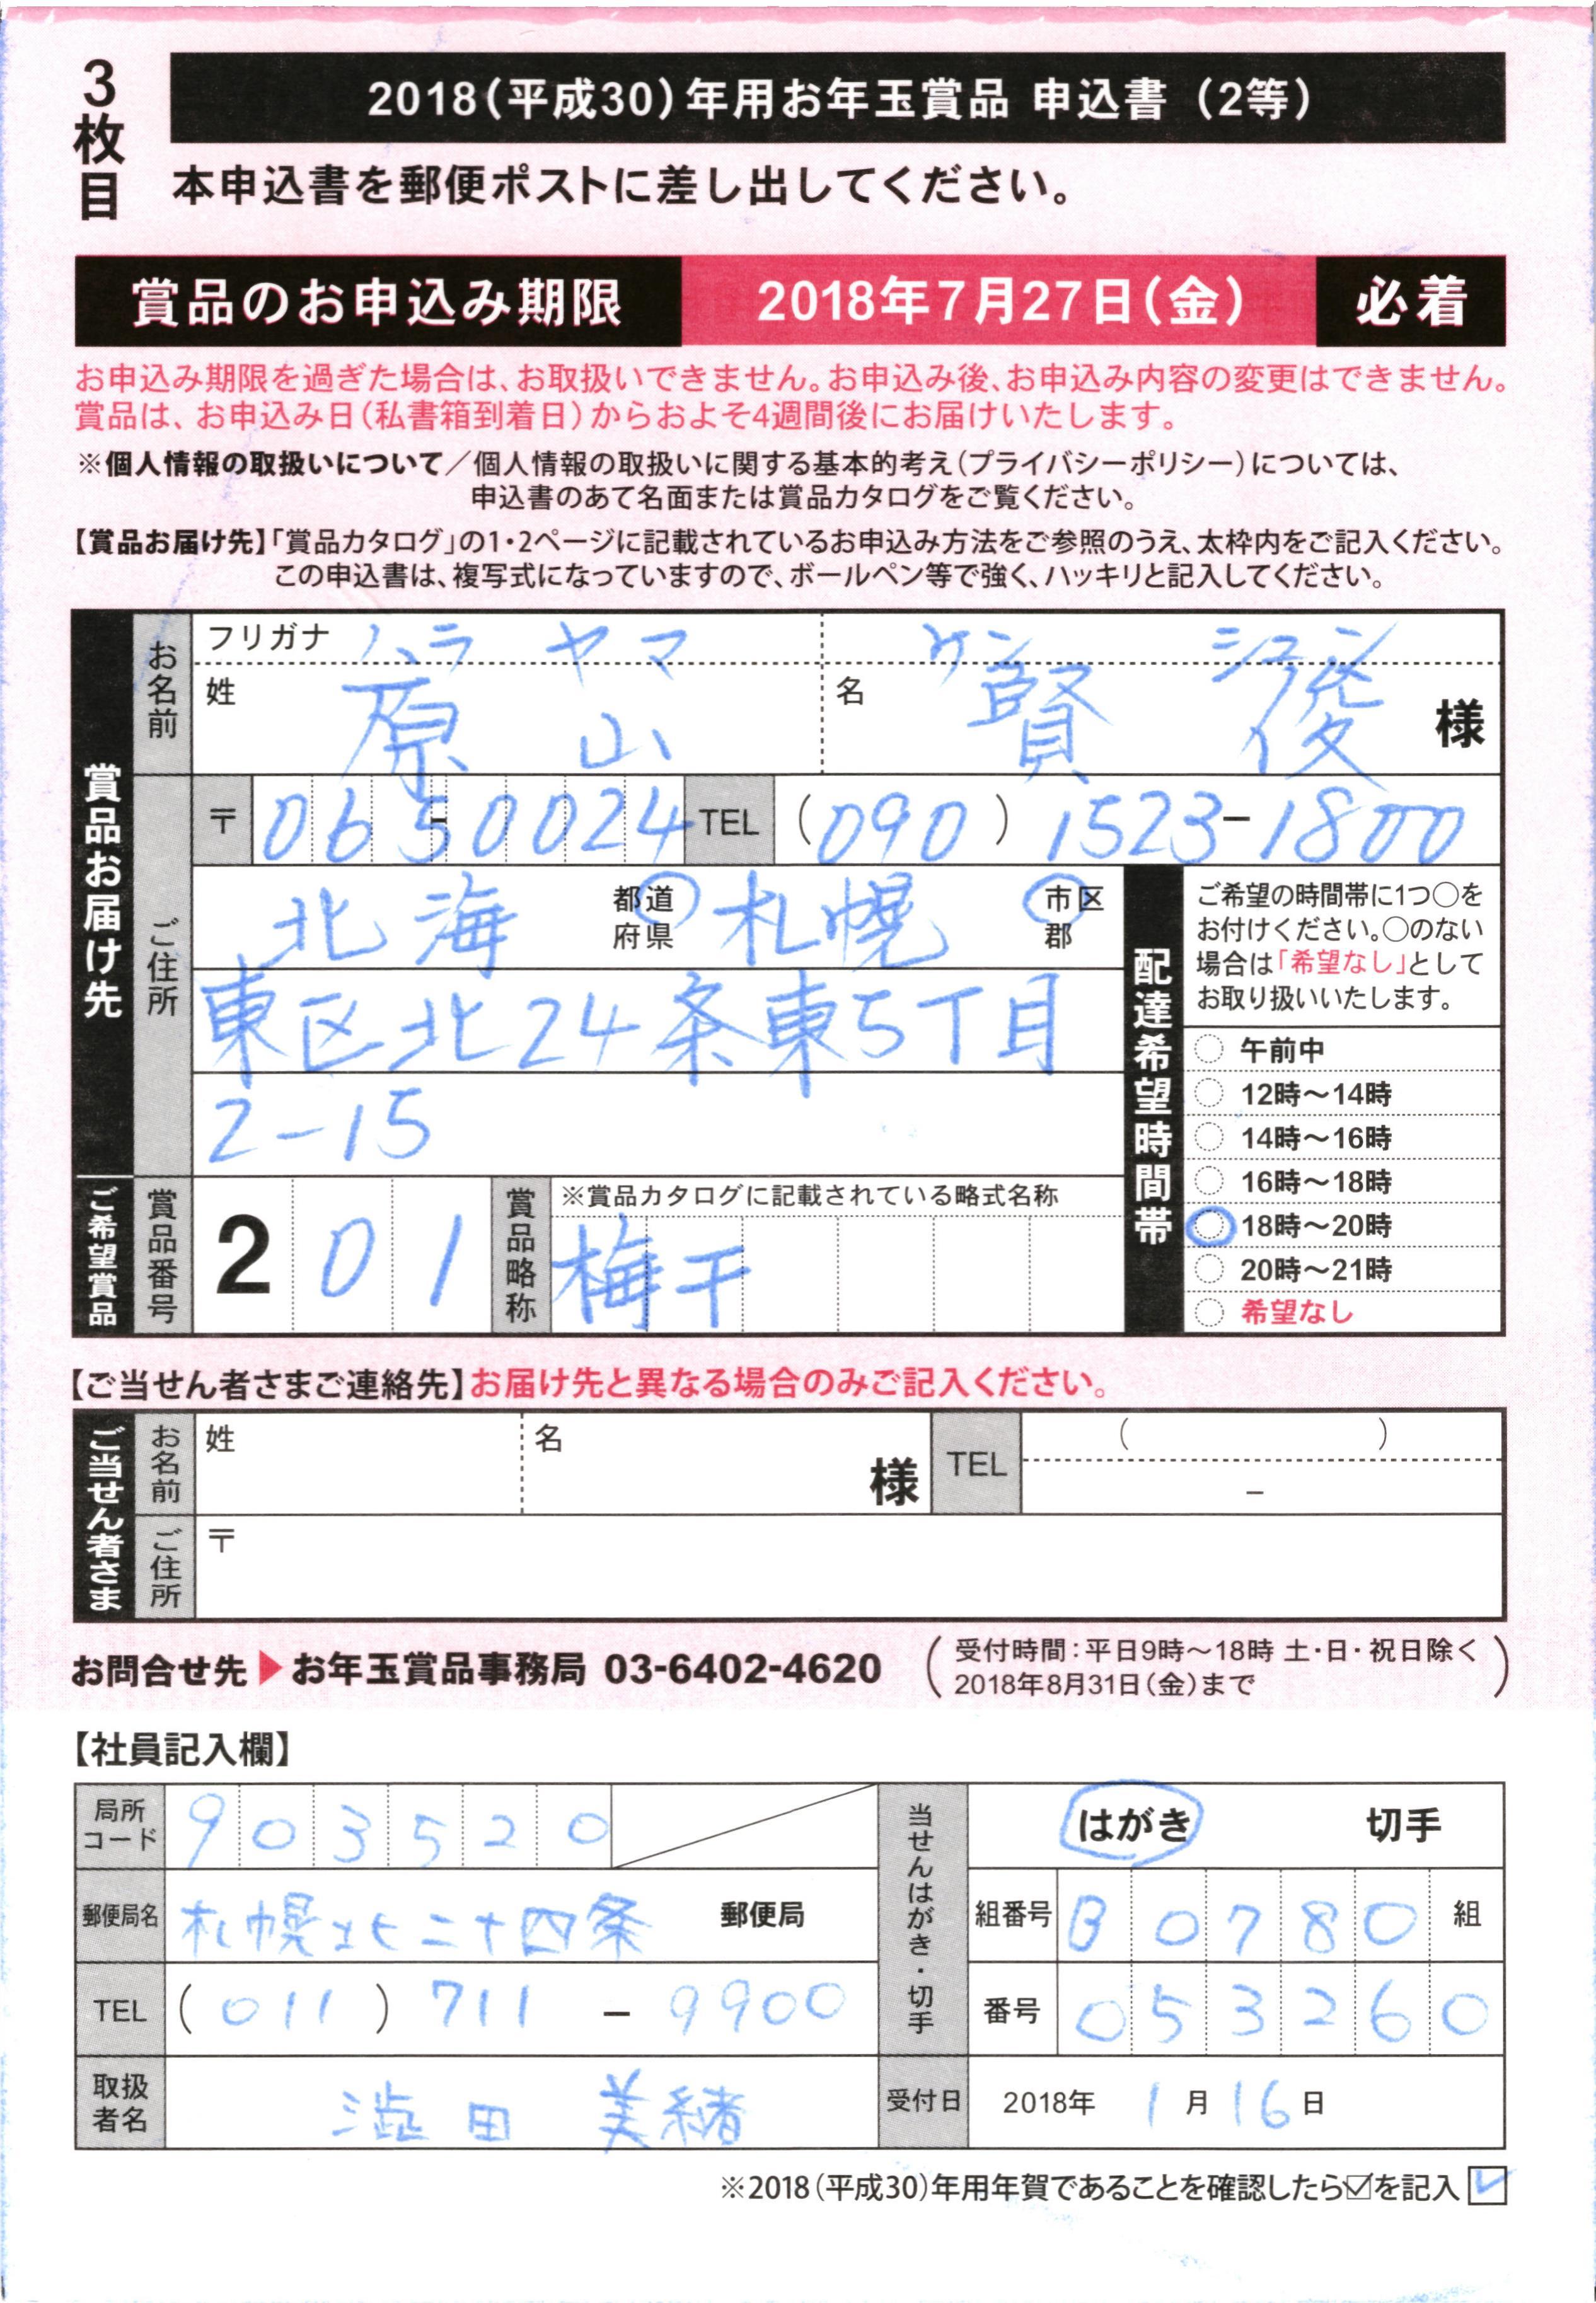 3枚目
2018(平成30)年用お年玉賞品 申込書 (2等)
本申込書を郵便ポストに差し出してください。
賞品のお申込み期限 2018年7月27日(金) 必着
お申込み期限を過ぎた場合は、お取扱いできません。お申込み後、お申込み内容の変更はできません。
賞品は、お申込み日(私書箱到着日)からおよそ4週間後にお届けいたします。
※個人情報の取扱いについて/個人情報の取扱いに関する基本的考え(プライバシーポリシー)については、
申込書のあて名面または賞品カタログをご覧ください。
【賞品お届け先】「賞品カタログ」の1・2ページに記載されているお申込み方法をご参照のうえ、太枠内をご記入ください。
この申込書は、複写式になっていますので、ボールペン等で強く、ハッキリと記入してください。
賞品お届け先
お名前
フリガナ ハラ ヤマ ケン シュン
姓 原 山 名 賢 俊 様
ご住所
〒 065-0024 TEL (090) 1523-1800
北海 都道府県 札幌 市区郡
東区北24条東5丁目
2-15
配達希望時間帯
ご希望の時間帯に1つ○を
お付けください。○のない
場合は「希望なし」として
お取り扱いいたします。
午前中
12時〜14時
14時〜16時
16時〜18時
18時〜20時
20時〜21時
希望なし
ご希望賞品
賞品番号 2 0 1 賞品略称 ※賞品カタログに記載されている略式名称
梅干
【ご当せん者さまご連絡先】お届け先と異なる場合のみご記入ください。
ご当せん者さま
お名前 姓 名 様 TEL ( ) −
ご住所 〒
お問合せ先▶お年玉賞品事務局 03-6402-4620 (受付時間:平日9時〜18時 土・日・祝日除く
2018年8月31日(金)まで)
【社員記入欄】
局所コード 903520 当せんはがき・切手 はがき 切手
郵便局名 札幌北二十四条 郵便局 組番号 B0780 組
TEL (011) 711 − 9900 番号 053260
取扱者名 澁田 美緒 受付日 2018年 1月16日
※2018(平成30)年用年賀であることを確認したら☑を記入 ☑